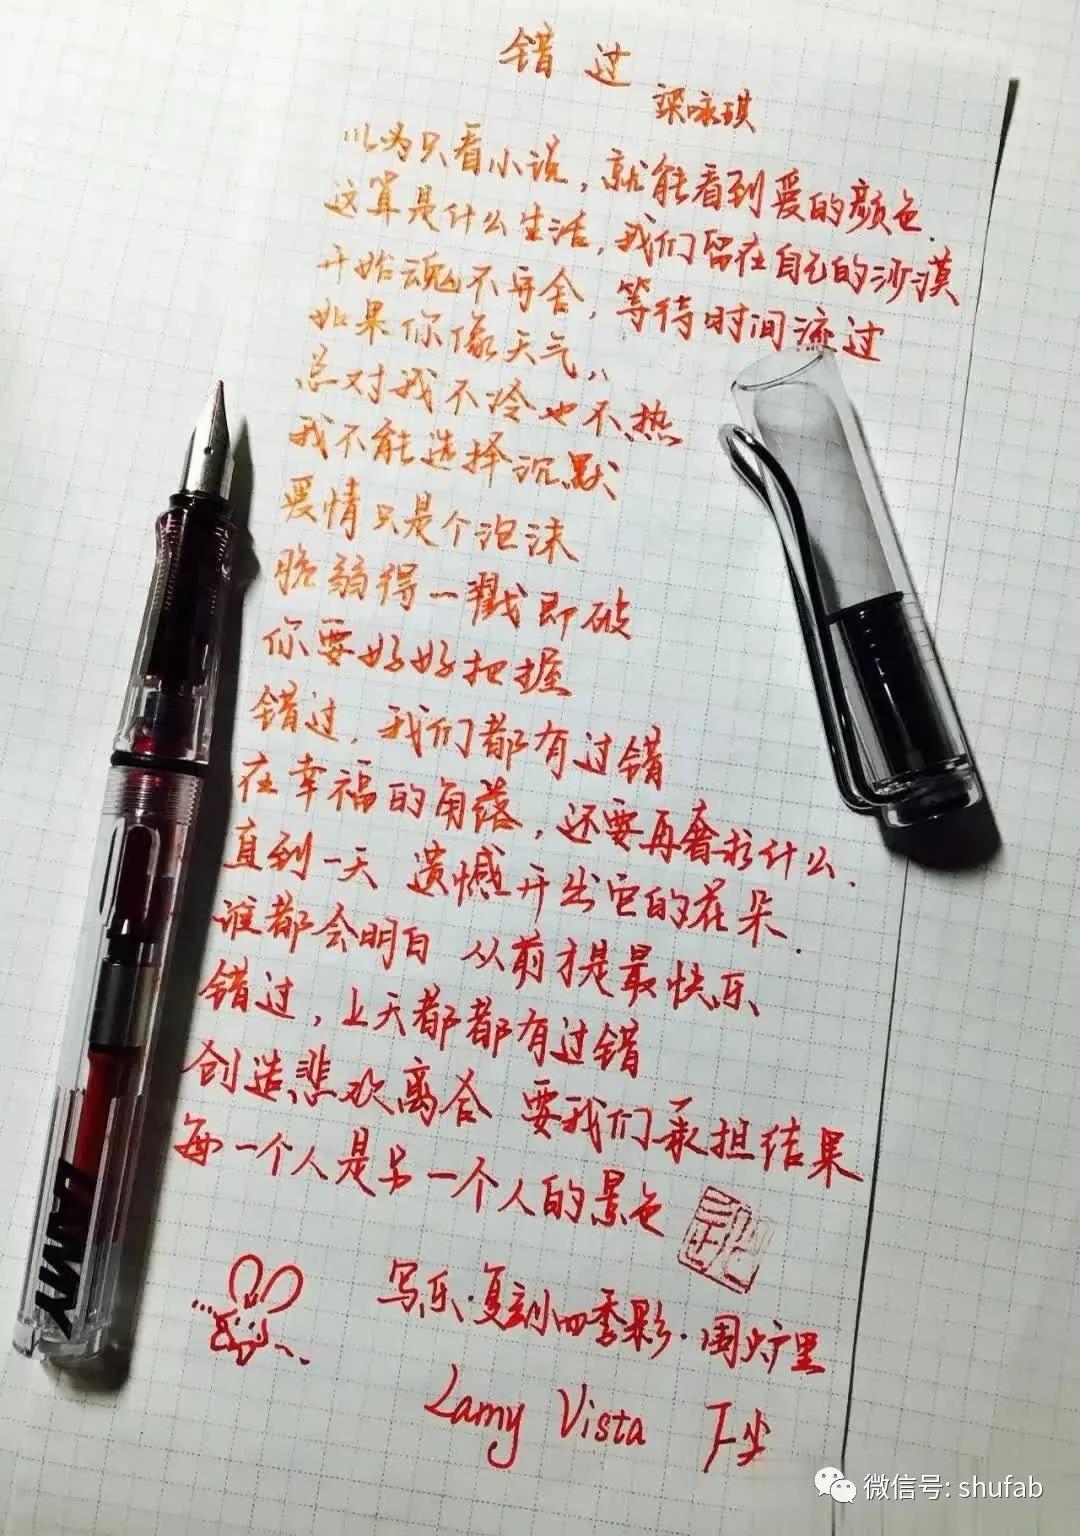 错过
梁咏琪
以为只看小说，就能看到爱的颜色.
这算是什么生活，我们留在自己的沙漠
开始魂不守舍，等待时间流过
如果你像天气，
总对我不冷也不热
我不能选择沉默
爱情只是个泡沫
脆弱得一戳即破
你要好好把握
错过，我们都有过错
在幸福的角落，还要再奢求什么.
直到一天 遗憾开出它的花朵.
谁都会明白 从前才是最快乐
错过，上天都都有过错
创造悲欢离合 要我们承担结果
每一个人是另一个人的景色
写乐·复刻四季彩·囲炉里
Lamy Vista F尖
LAMY
微信号: shufab